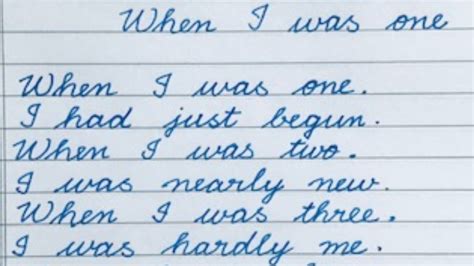 When I was one
When I was one.
I had just begun.
When I was two.
I was nearly new.
When I was three.
I was hardly me.